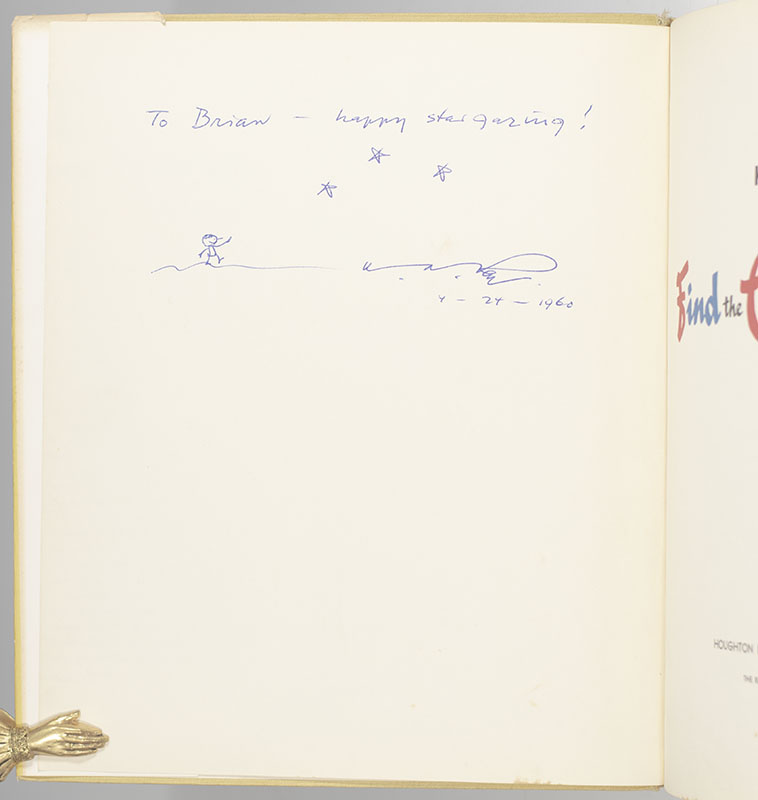 To Brian – happy stargazing!
H. A. Rey.
4 – 24 – 1960
Find the
HOUGHTON
THE